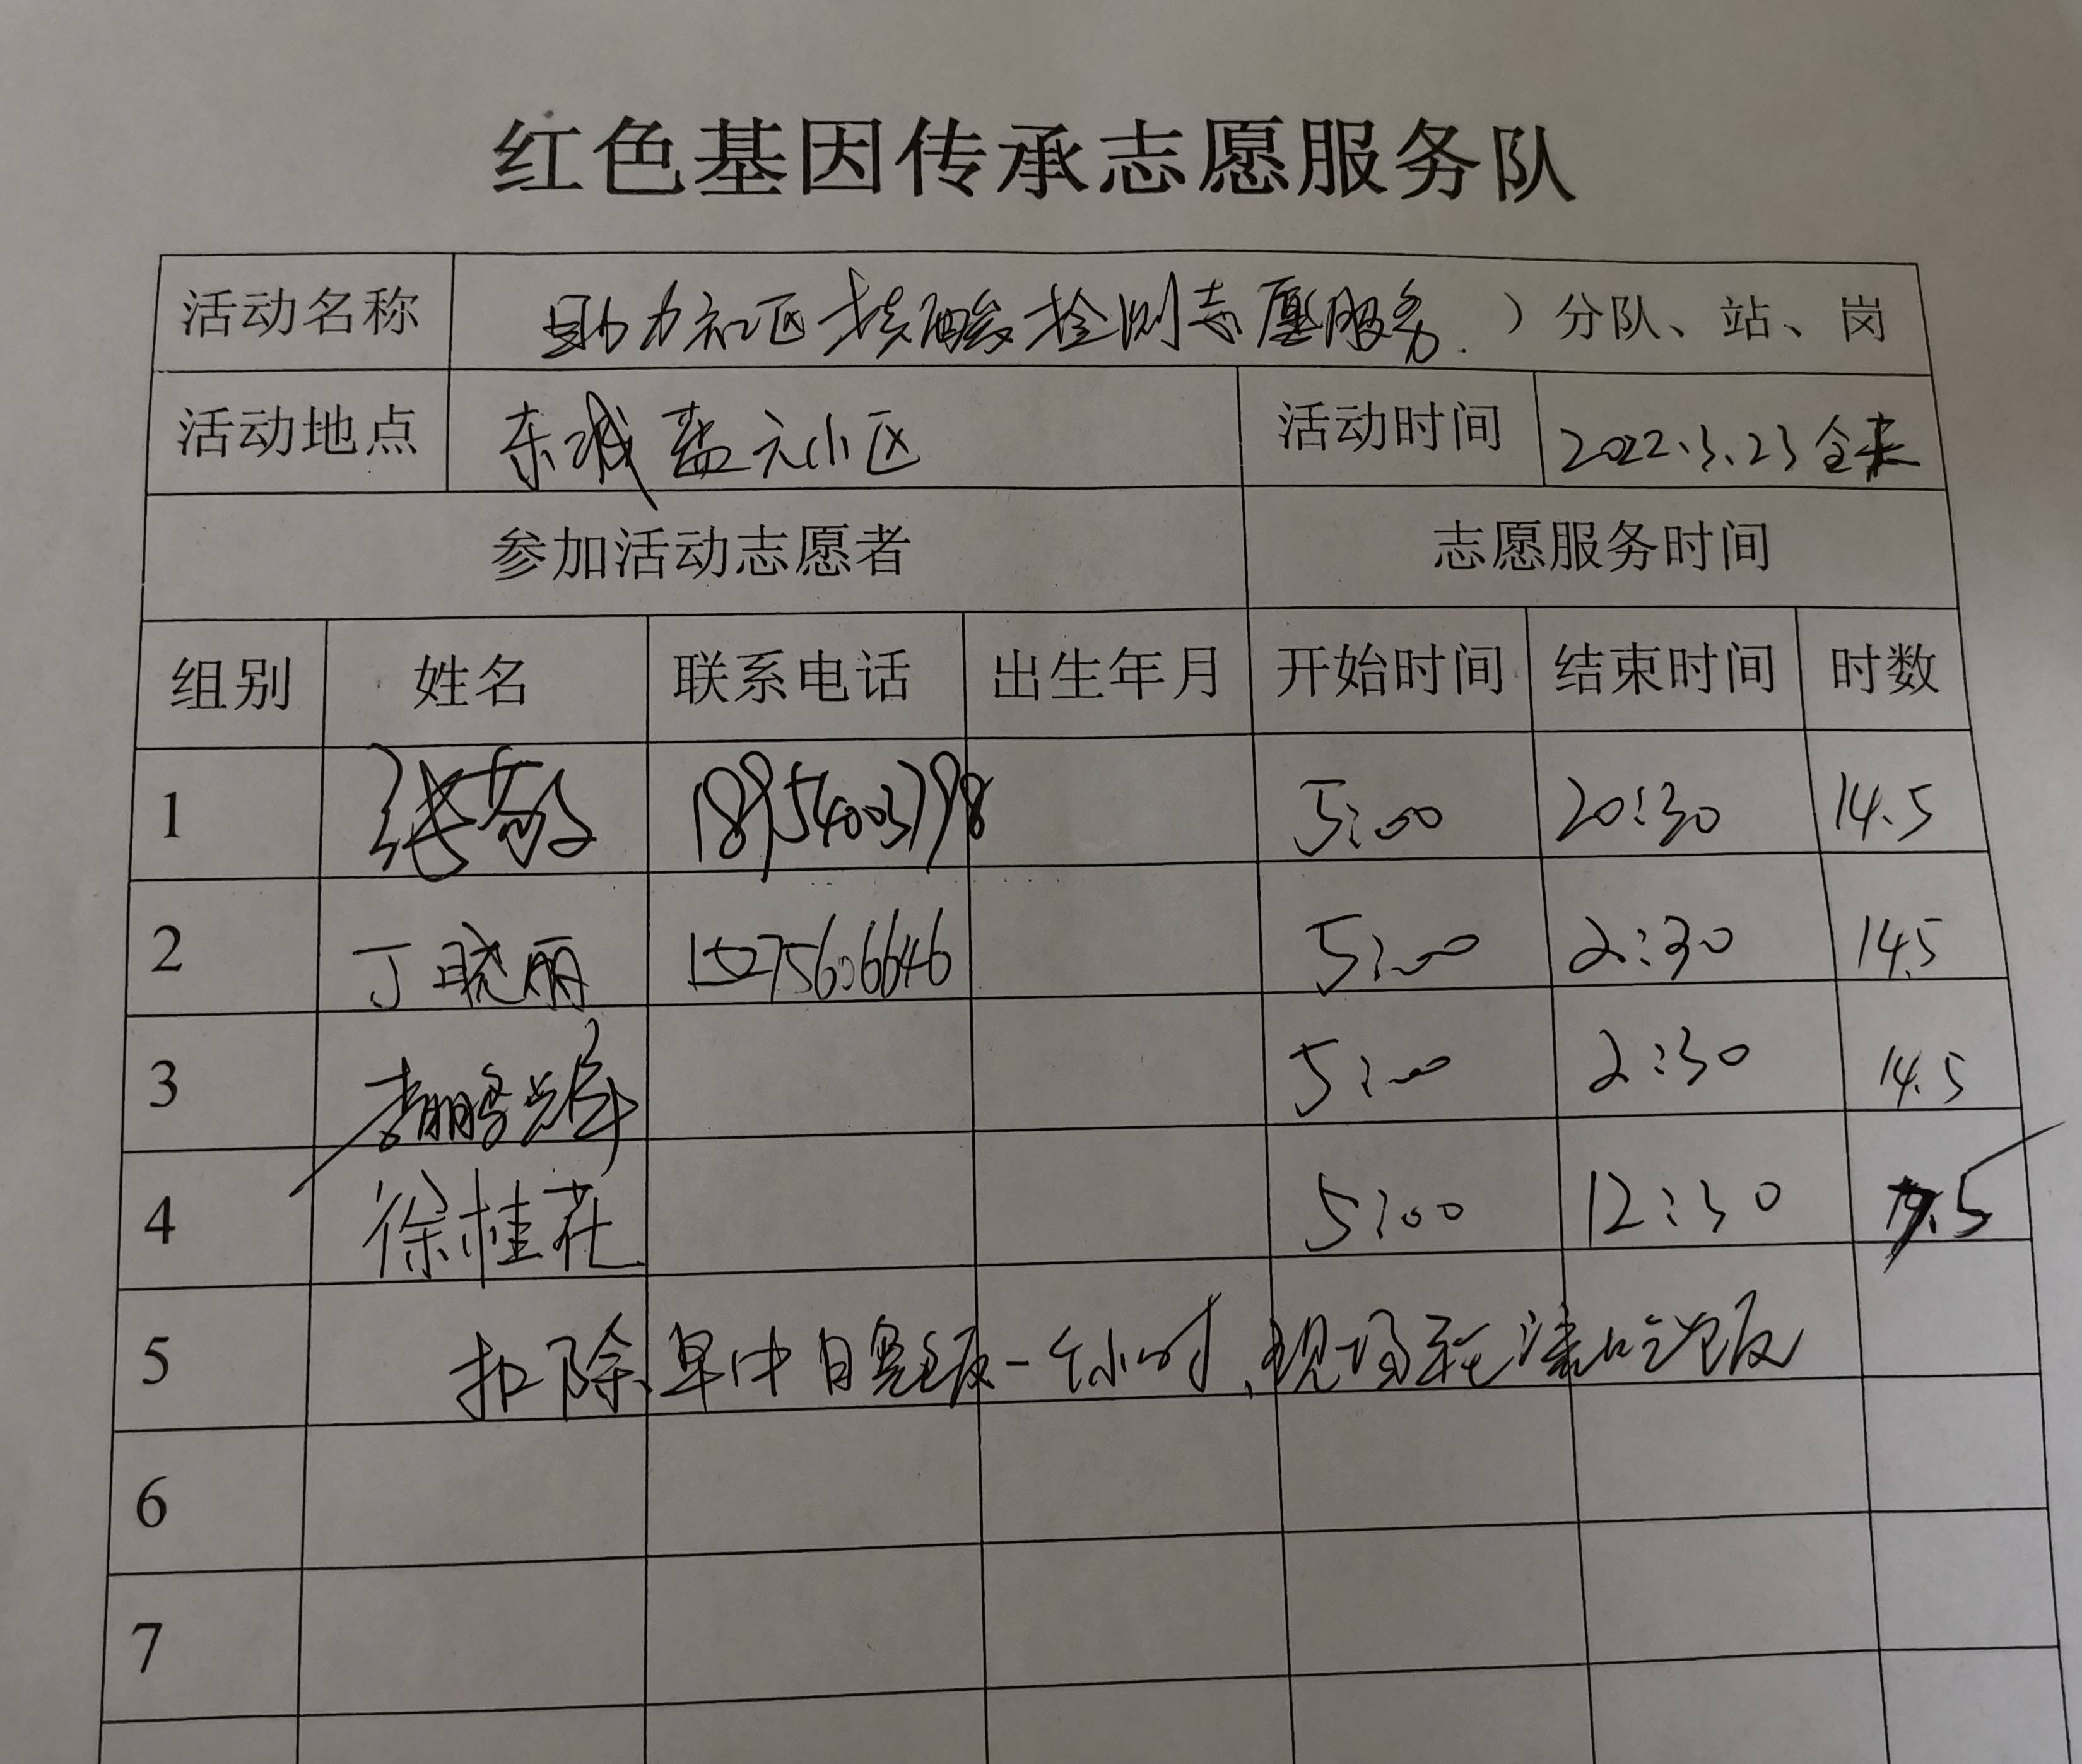 红色基因传承志愿服务队
活动名称 助力社区核酸检测志愿服务. ）分队、站、岗
活动地点 东城盐元小区 活动时间 2022.3.23全天
参加活动志愿者 志愿服务时间
组别 姓名 联系电话 出生年月 开始时间 结束时间 时数
1 张敬 18954003798 5:00 20:30 14.5
2 丁晓丽 15275606646 5:00 2:30 14.5
3 李鹏 5:00 2:30 14.5
4 徐桂花 5:00 12:30 7.5
5 扣除早中 饭一个小时、现场 吃饭
6
7